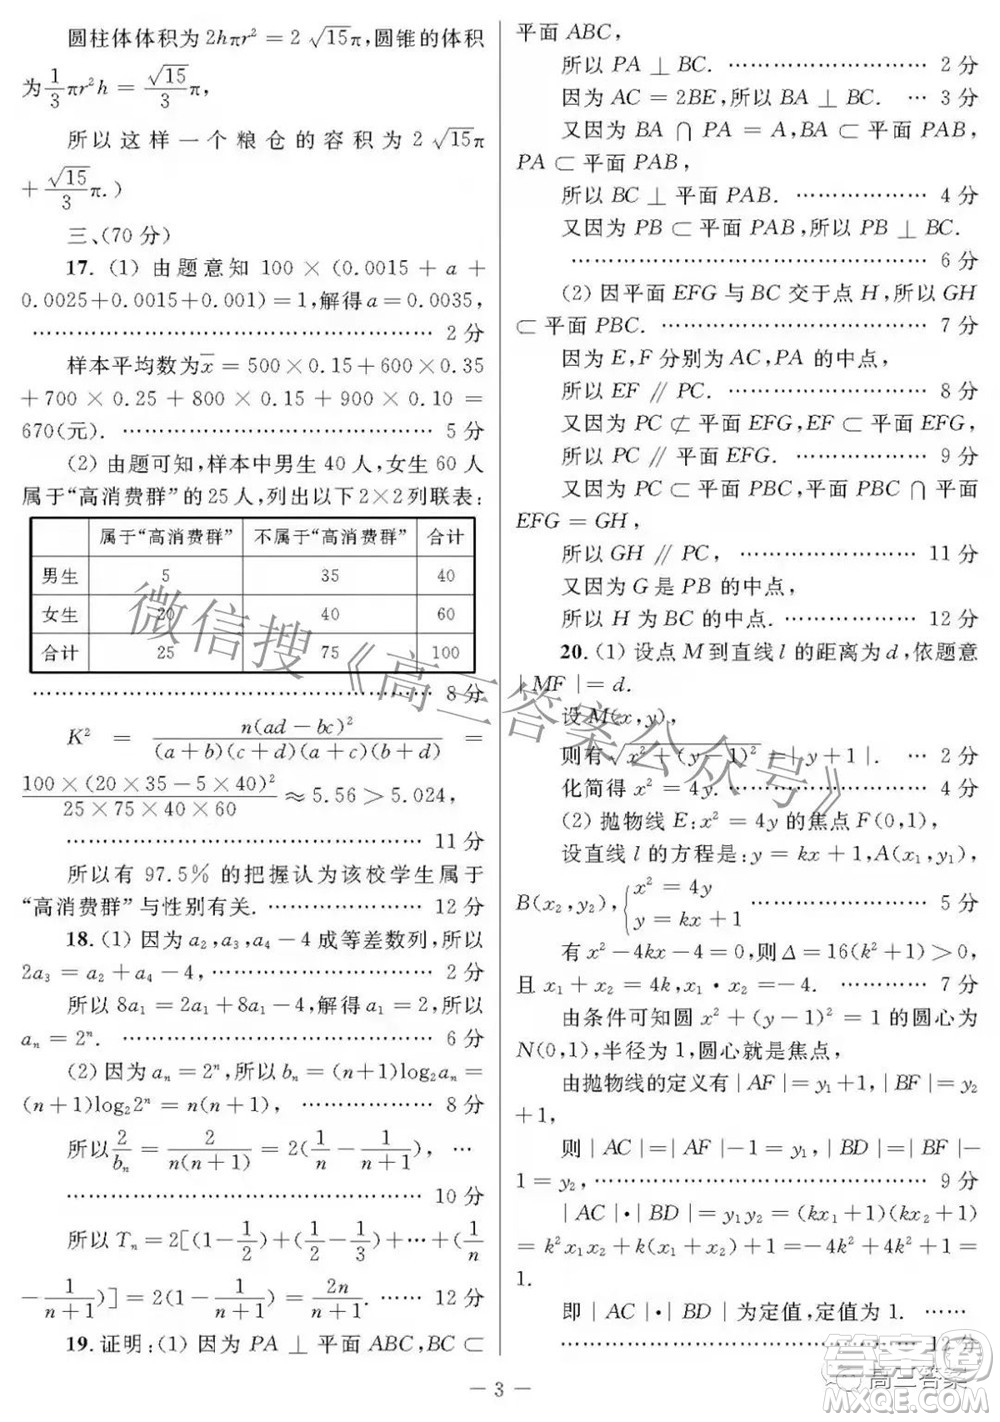 圆柱体体积为 2hπr² = 2√15π,圆锥的体积
为 1/3 πr²h = √15/3 π,
所以这样一个粮仓的容积为 2√15π
+ √15/3 π.)
三、(70 分)
17. (1) 由题意知 100 × (0.0015 + a +
0.0025+0.0015+0.001)=1,解得 a=0.0035,
………………………………………… 2 分
样本平均数为 x̄ = 500×0.15+600×0.35
+700 × 0.25 + 800 × 0.15 + 900 × 0.10 =
670(元). ………………………………… 5 分
(2) 由题可知,样本中男生 40 人,女生 60 人
属于“高消费群”的 25 人,列出以下 2×2 列联表:
属于“高消费群” 不属于“高消费群” 合计
男生 5 35 40
女生 20 40 60
合计 25 75 100
………………………………………… 8 分
K² = n(ad−bc)²/((a+b)(c+d)(a+c)(b+d)) =
100×(20×35−5×40)²/(25×75×40×60) ≈ 5.56 > 5.024,
……………………………………… 11 分
所以有 97.5% 的把握认为该校学生属于
“高消费群”与性别有关. ………………… 12 分
18. (1) 因为 a₂,a₃,a₄−4 成等差数列,所以
2a₃ = a₂ + a₄ − 4, ……………………… 2 分
所以 8a₁ = 2a₁+8a₁−4,解得 a₁=2,所以
aₙ = 2ⁿ. ………………………………… 6 分
(2) 因为 aₙ=2ⁿ,所以 bₙ = (n+1)log₂aₙ =
(n+1)log₂2ⁿ = n(n+1), ……………… 8 分
所以 2/bₙ = 2/(n(n+1)) = 2(1/n − 1/(n+1)), …
……………………………………… 10 分
所以 Tₙ = 2[(1−1/2)+(1/2−1/3)+…+(1/n
−1/(n+1))] = 2(1−1/(n+1)) = 2n/(n+1). …… 12 分
19. 证明:(1) 因为 PA ⊥ 平面 ABC,BC ⊂
平面 ABC,
所以 PA ⊥ BC. ……………………… 2 分
因为 AC = 2BE,所以 BA ⊥ BC. … 3 分
又因为 BA ∩ PA = A,BA ⊂ 平面 PAB,
PA ⊂ 平面 PAB,
所以 BC ⊥ 平面 PAB. ……………… 4 分
又因为 PB ⊂ 平面 PAB,所以 PB ⊥ BC.
……………………………………… 6 分
(2) 因平面 EFG 与 BC 交于点 H,所以 GH
⊂ 平面 PBC. ………………………… 7 分
因为 E,F 分别为 AC,PA 的中点,
所以 EF ∥ PC. ……………………… 8 分
又因为 PC ⊄ 平面 EFG,EF ⊂ 平面 EFG,
所以 PC ∥ 平面 EFG. ……………… 9 分
又因为 PC ⊂ 平面 PBC,平面 PBC ∩ 平面
EFG = GH,
所以 GH ∥ PC, …………………… 11 分
又因为 G 是 PB 的中点,
所以 H 为 BC 的中点. ……………… 12 分
20. (1) 设点 M 到直线 l 的距离为 d,依题意
| MF | = d.
设 M(x,y),
则有 √(x² + (y−1)²) = | y+1 |. … 2 分
化简得 x² = 4y. ……………………… 4 分
(2) 抛物线 E:x² = 4y 的焦点 F(0,1),
设直线 l 的方程是:y = kx + 1,A(x₁,y₁),
B(x₂,y₂),{x² = 4y
y = kx + 1 ………………… 5 分
有 x²−4kx−4=0,则 Δ = 16(k²+1)>0,
且 x₁ + x₂ = 4k,x₁ • x₂ = −4. ……… 7 分
由条件可知圆 x² + (y−1)² = 1 的圆心为
N(0,1),半径为 1,圆心就是焦点,
由抛物线的定义有 | AF | = y₁+1,| BF | = y₂
+1,
则 | AC | = | AF | −1 = y₁,| BD | = | BF | −
1 = y₂, ………………………………… 9 分
| AC | • | BD | = y₁y₂ = (kx₁+1)(kx₂+1)
= k²x₁x₂ + k(x₁+x₂) + 1 = −4k² + 4k² + 1 =
1.
即 | AC | • | BD | 为定值,定值为 1. ……
……………………………………… 12 分
— 3 —
微信搜《高三答案公众号》
答案圈
高三答案